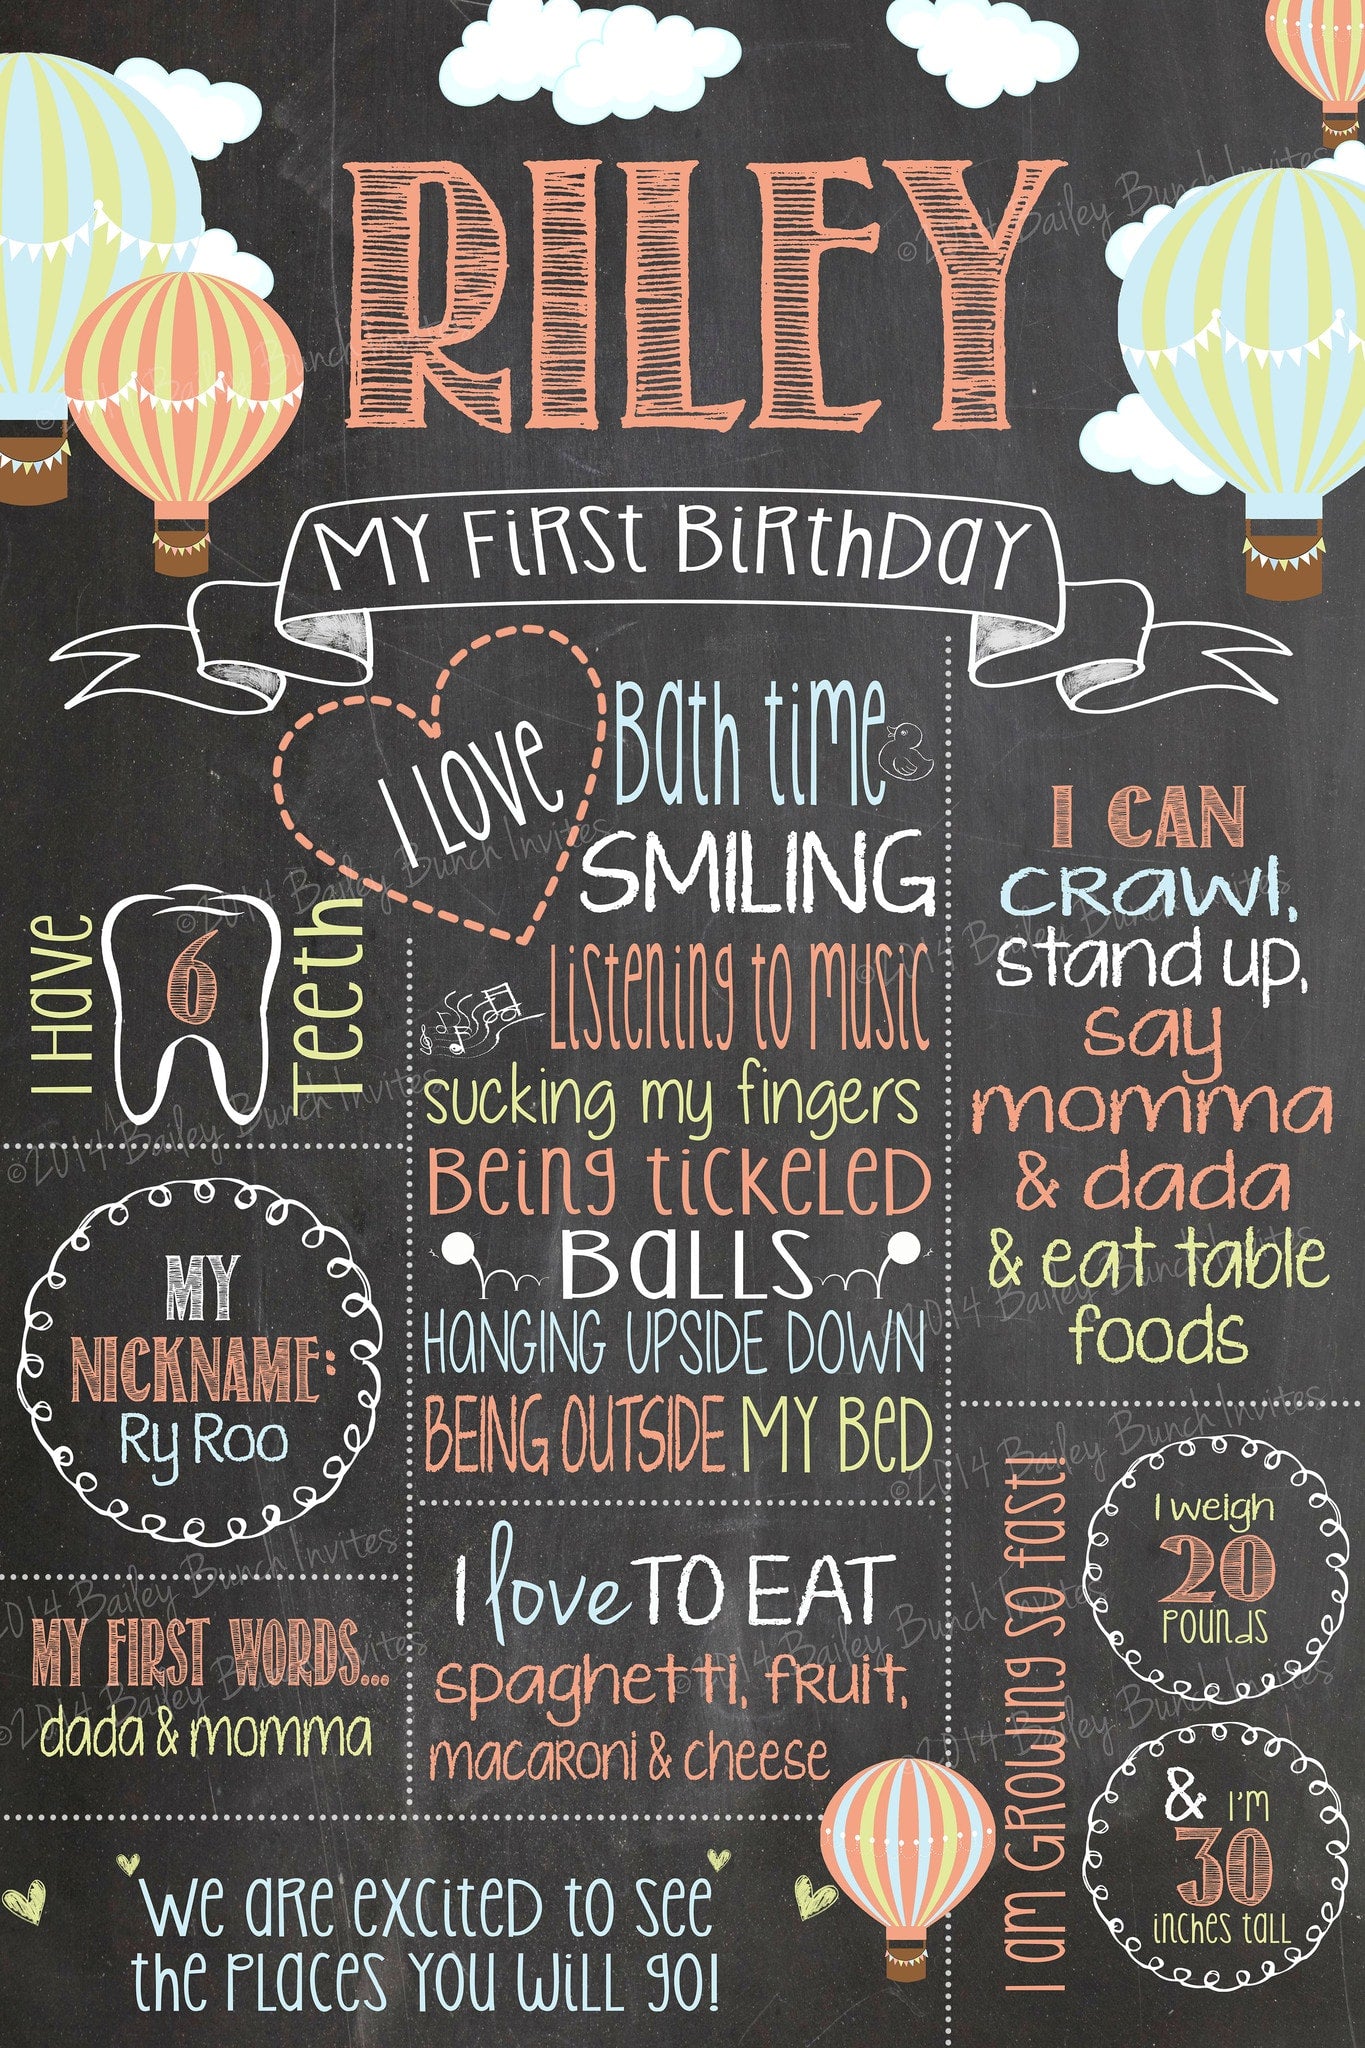 RILEY
MY FIRST BIRTHDAY
I LOVE
Bath time
SMILING
Listening to music
sucking my fingers
Being tickeled
Balls
HANGING UPSIDE DOWN
BEING OUTSIDE MY BED
I Have
6
Teeth
MY
NICKNAME:
Ry Roo
MY FIRST WORDS...
dada & momma
I love TO EAT
spaghetti, fruit,
macaroni & cheese
I CAN
crawl,
stand up,
say
momma
& dada
& eat table
foods
I am GROWING SO fast!
I weigh
20
pounds
& I'm
30
inches tall
We are excited to see
the places you will go!
©2014 Bailey Bunch Invites